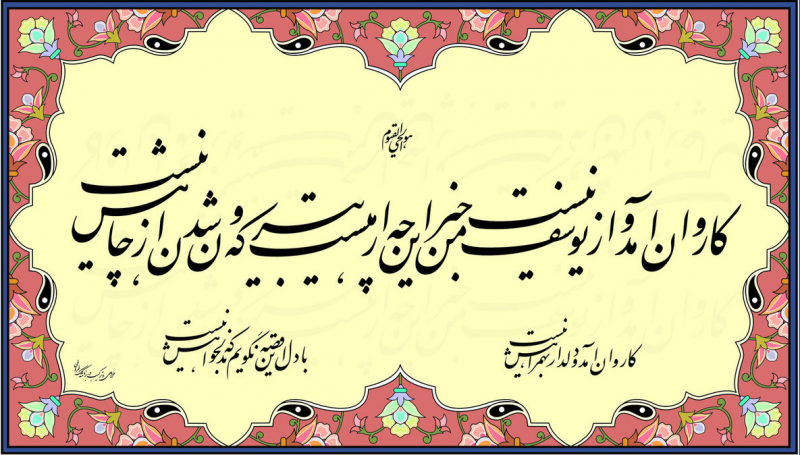 هو الحی القیوم
کاروان آمد و از یوسف من نیست خبر این چه راهیست که بیرون شدن از چاهش نیست
کاروان آمد و دلدار بهمراهش نیست
با دل این قصه نگویم که بدلخواهش نیست